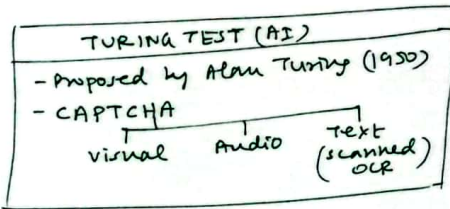 TURING TEST (AI)
- Proposed by Alan Turing (1950)
- CAPTCHA
Visual Audio Text
(scanned)
OCR